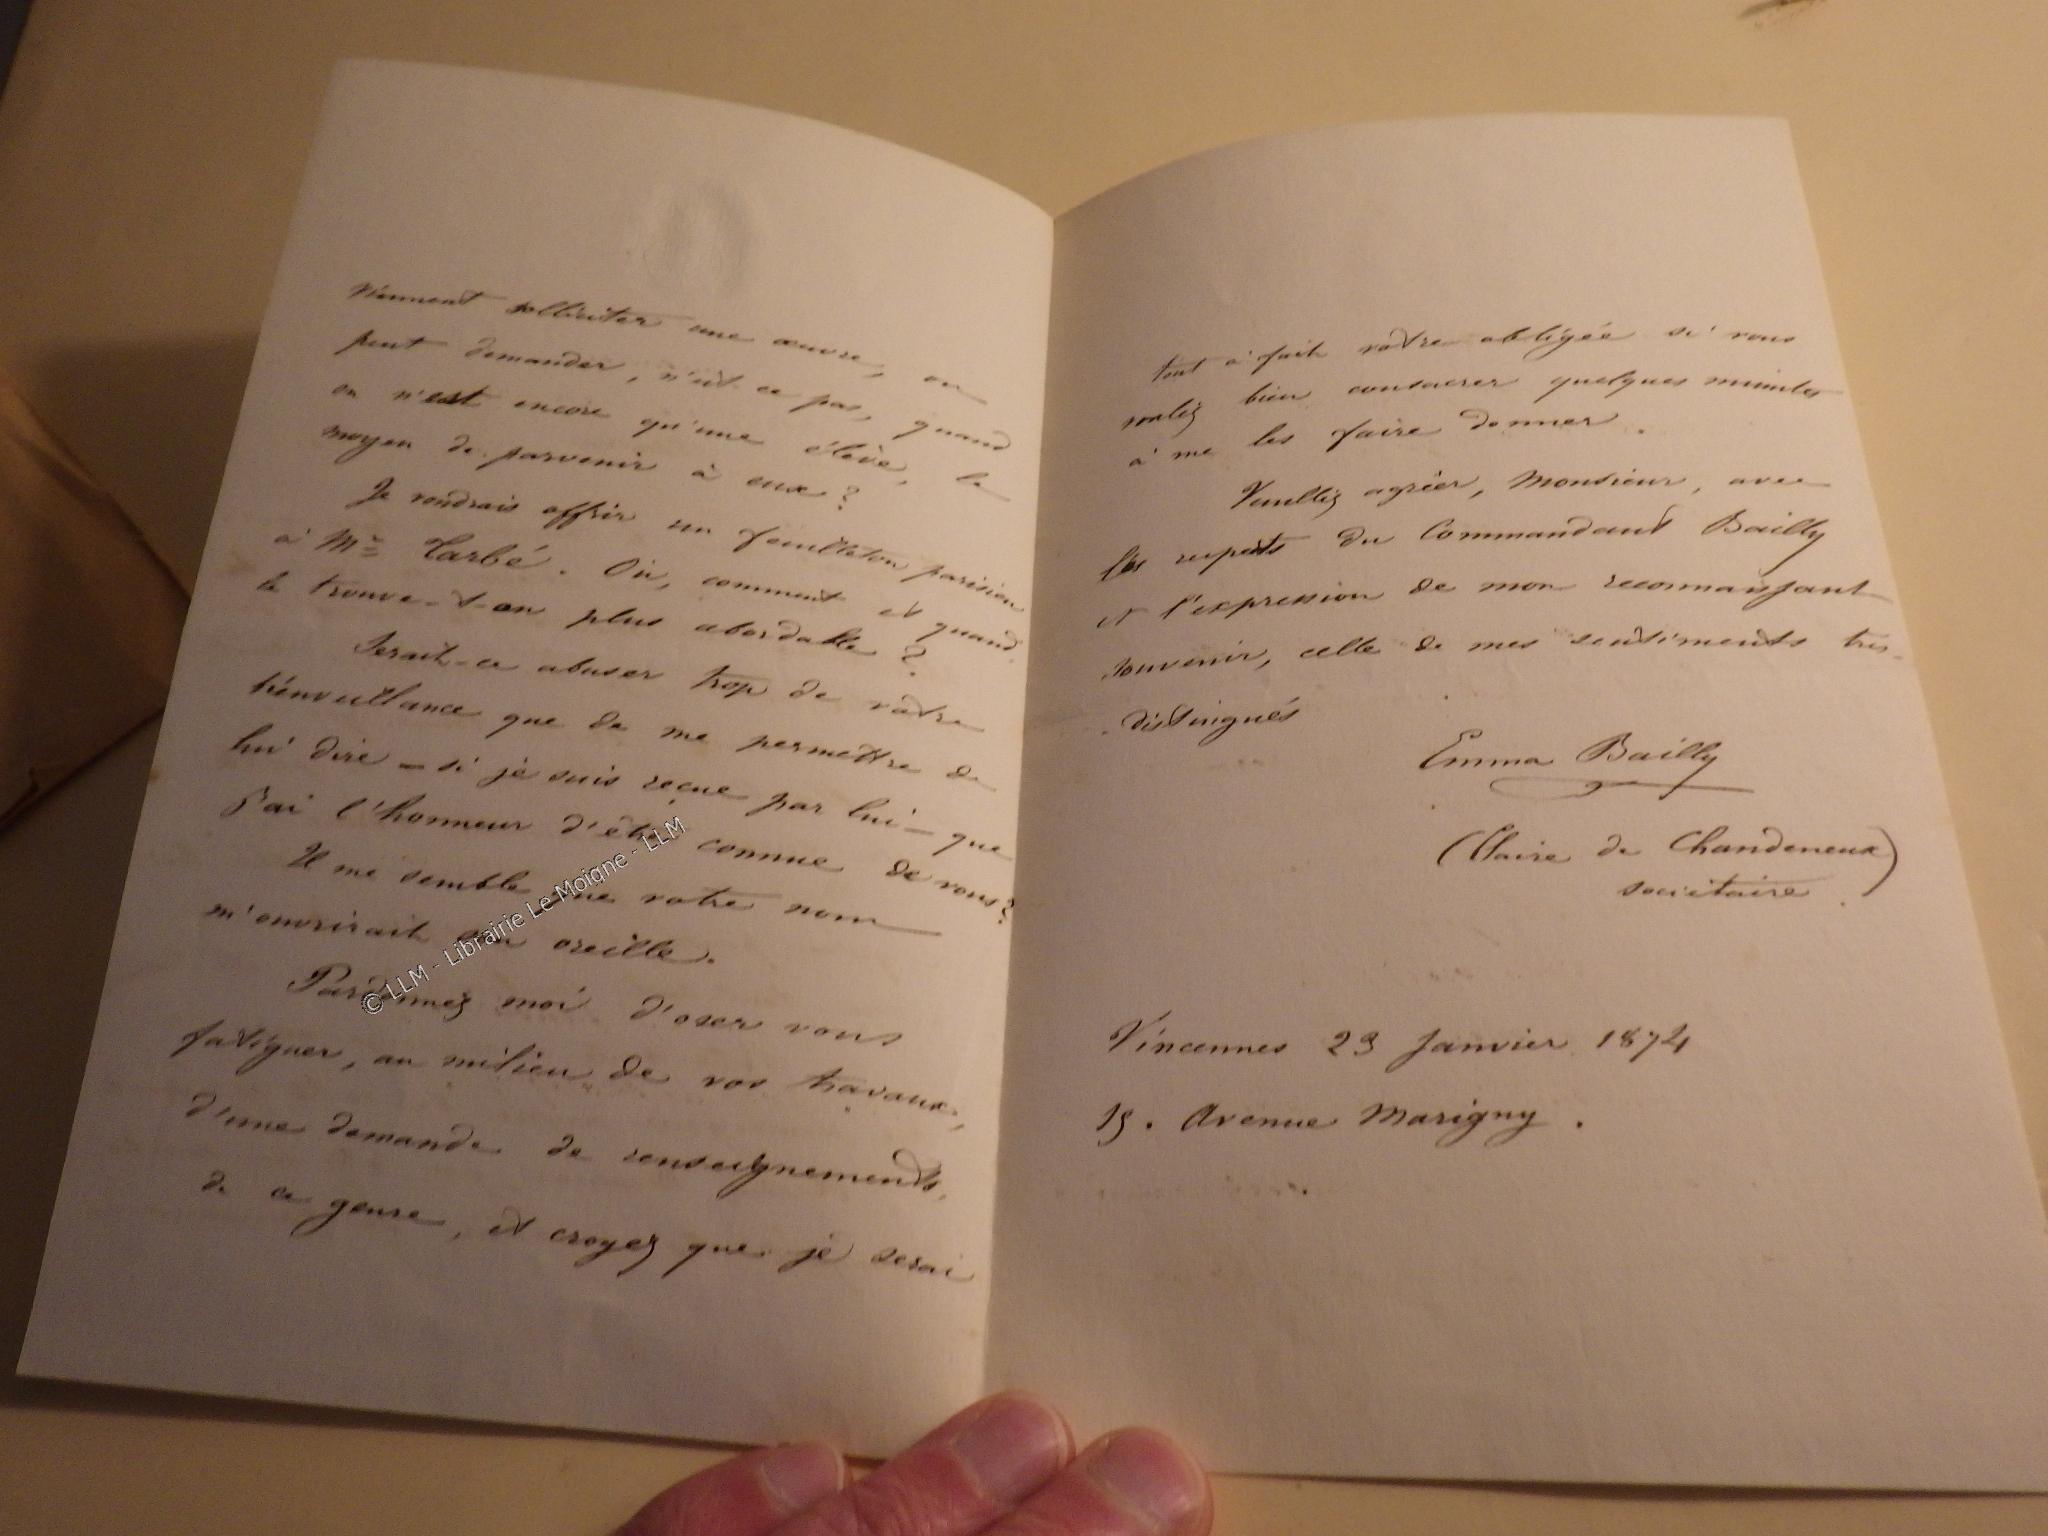 viennent solliciter une œuvre, on
peut demander, n'est ce pas, quand
on n'est encore qu'une élève, le
moyen de parvenir à eux ?
Je voudrais offrir un feuilleton parisien
à Mr Tarbé. Où, comment et quand
le trouve-t-on plus abordable ?
Serait-ce abuser trop de votre
bienveillance que de me permettre de
lui dire - si je suis reçue par lui - que
j'ai l'honneur d'être connue de vous ?
Il me semble que votre nom
m'ouvrirait son oreille.
Pardonnez moi d'oser vous
fatiguer, au milieu de vos travaux,
d'une demande de renseignements,
de ce genre, et croyez que je serai
© LLM - Librairie Le Moigne - LLM
tout à fait votre obligée si vous
voulez bien consacrer quelques minutes
à me les faire donner.
Veuillez agréer, Monsieur, avec
les respects du Commandant Bailly
et l'expression de mon reconnaissant
souvenir, celle de mes sentiments très
distingués
Emma Bailly
(Claire de Chandeneux
sociétaire.)
Vincennes 23 Janvier 1874
19. Avenue Marigny.